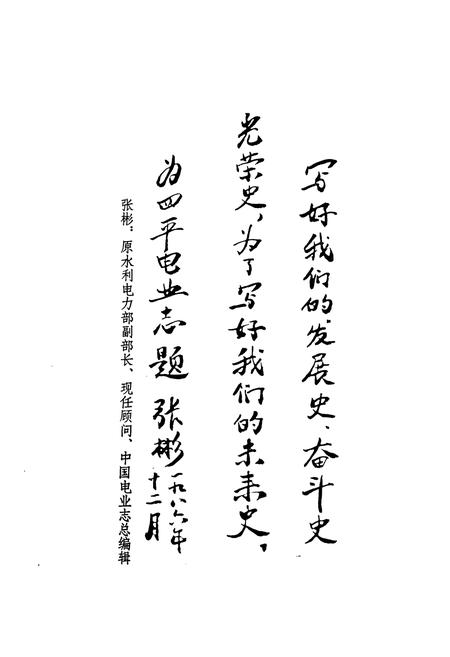 写好我们的发展史、奋斗史
光荣史，为了写好我们的未来史，
为四平电业志题 张彬 一九八六年
十二月
张彬：原水利电力部副部长、现任顾问、中国电业志总编辑